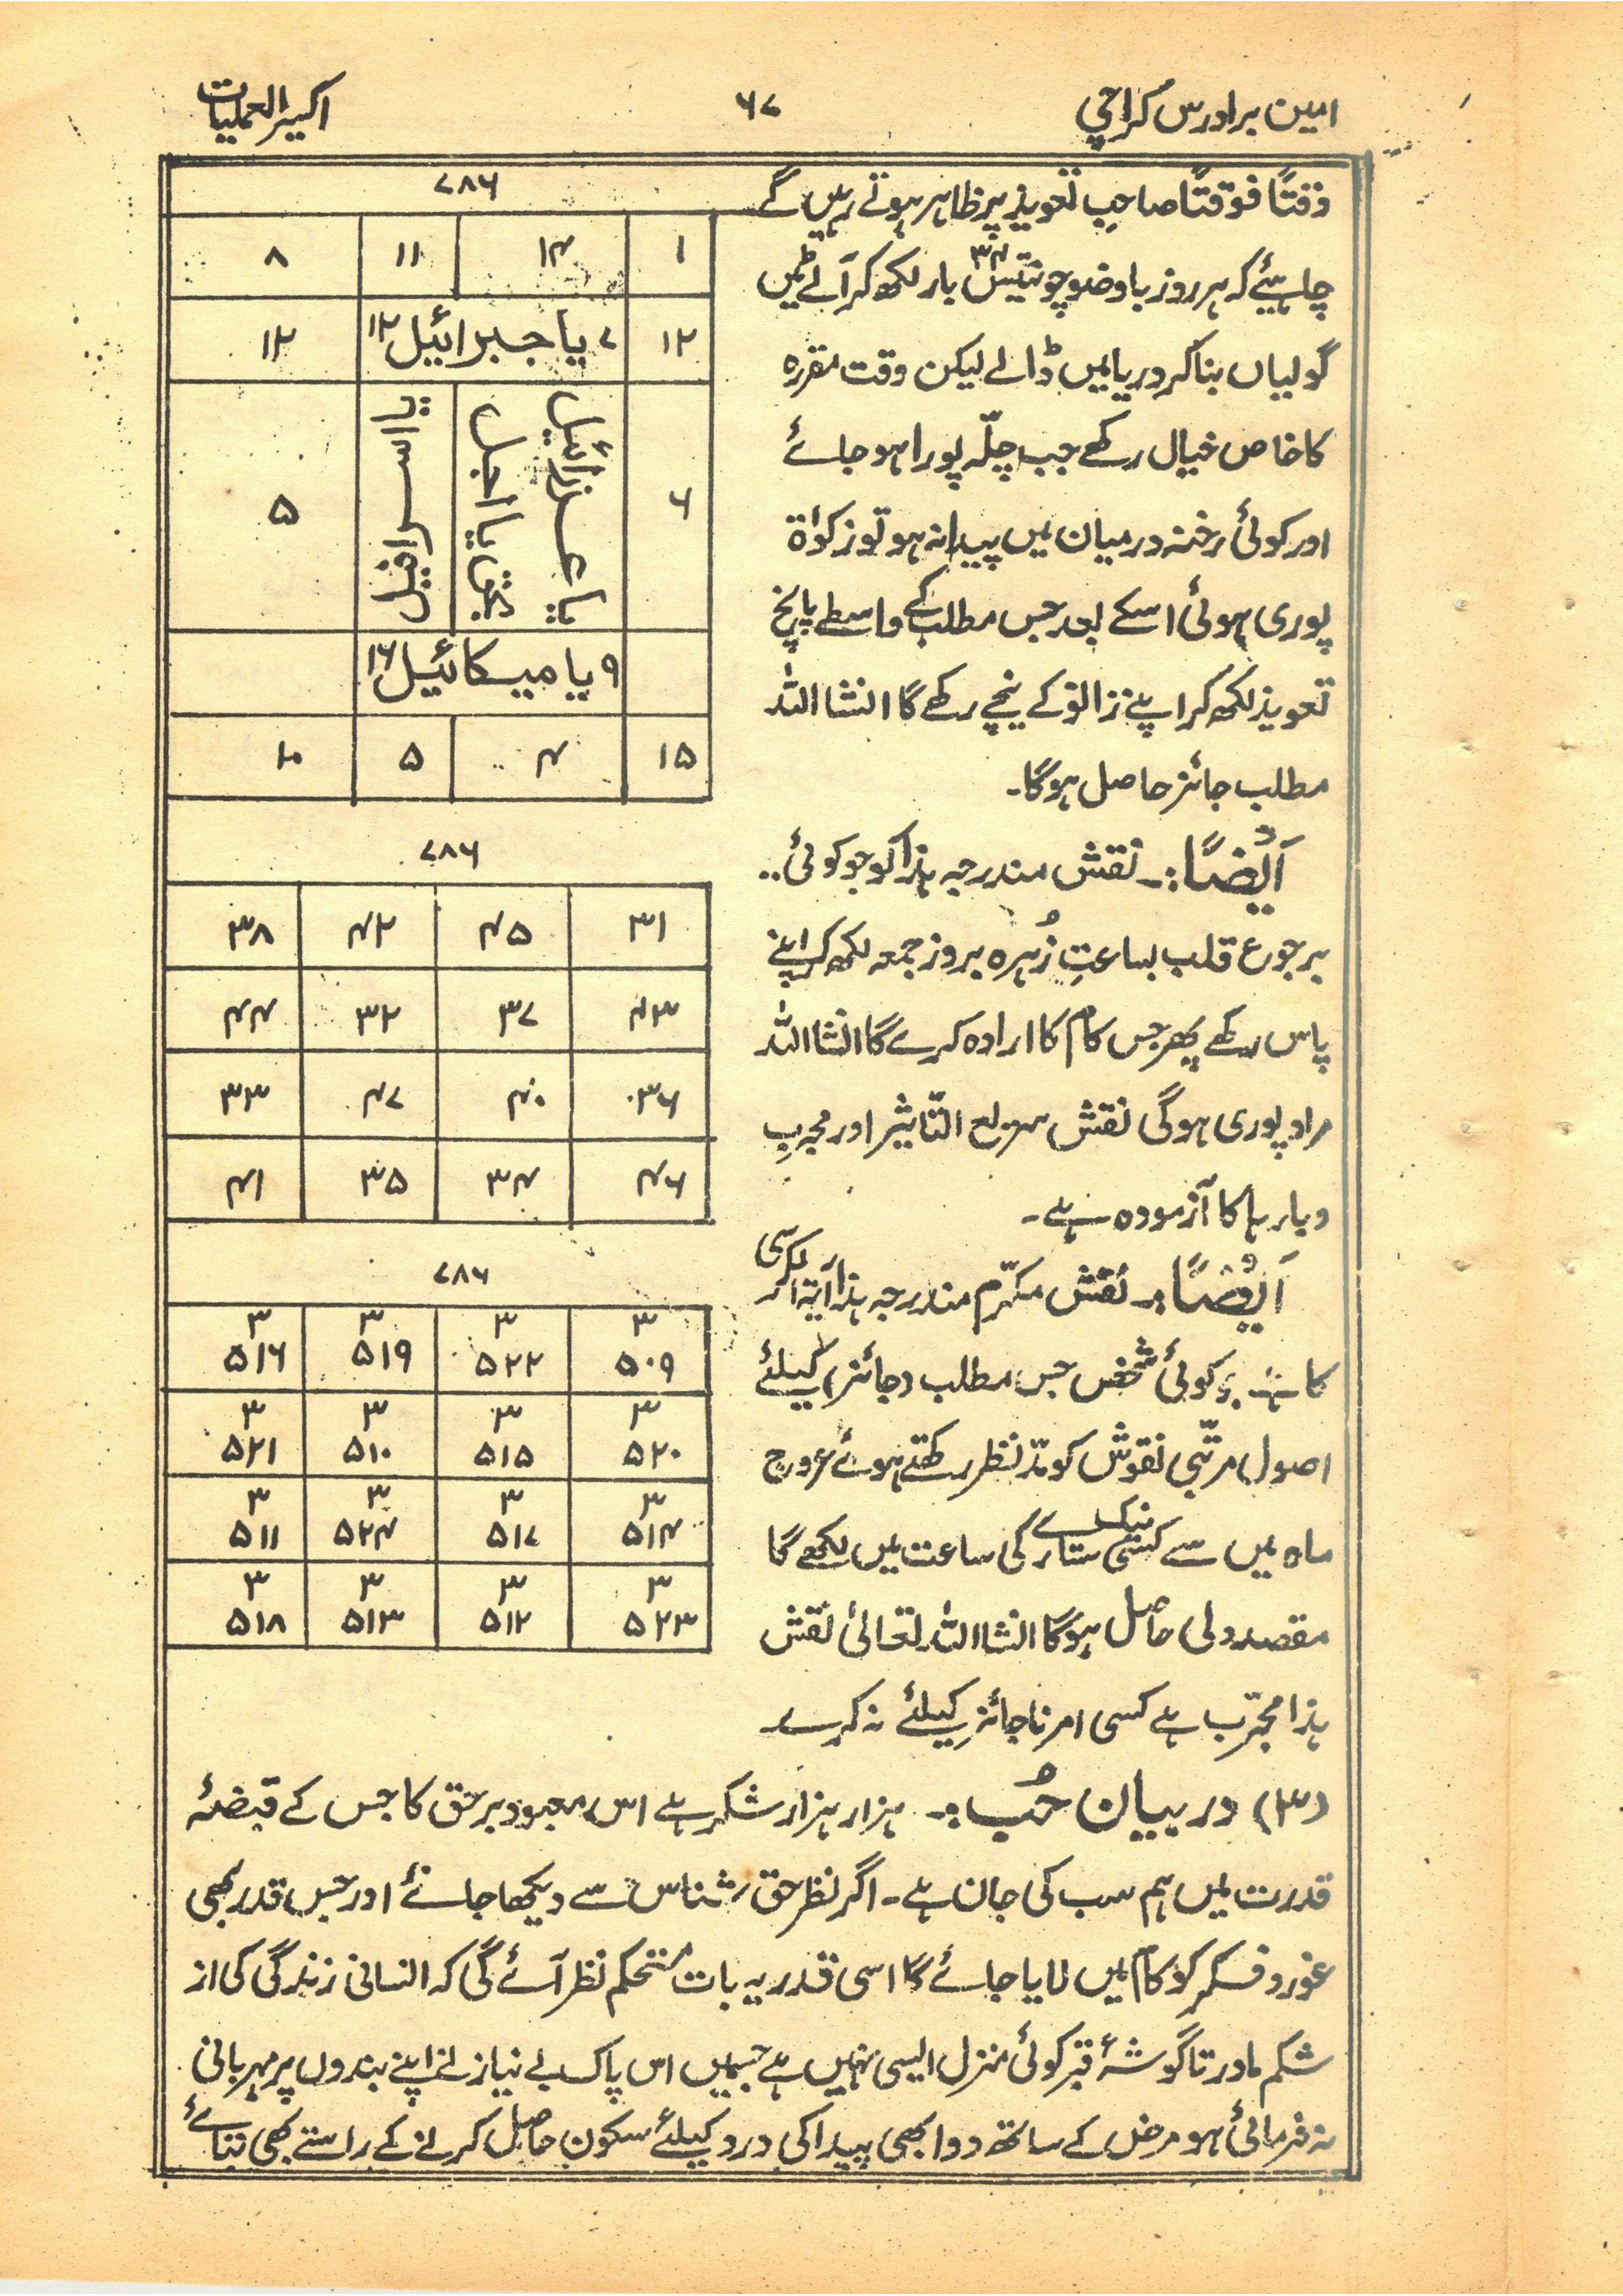 امین برادرس کراچی ۶۷ اکسیر العملیات
وقتاً فوقتاً صاحبِ تعویذ پر ظاہر ہوتے رہیں گے
چاہیئے کہ ہر روز باوضو چونتیس ۳۴ بار لکھ کر آٹے میں
گولیاں بنا کر دریا میں ڈالے لیکن وقت مقررہ
کا خاص خیال رکھے جب چلّہ پورا ہو جائے
اور کوئی رخنہ درمیان میں پیدا نہ ہو تو زکوٰۃ
پوری ہوئی اسکے بعد جس مطلب کے واسطے پانچ
تعویذ لکھ کر اپنے زانو کے نیچے رکھے گا انشااللہ
مطلب جائز حاصل ہوگا۔
۷۸۶
۱ ۱۴ ۱۱ ۸
۱۲ ۷ یا جبرائیل ۱۲ ۱۲
۶ یا عزرائیل بحق یا اجل یا اسرافیل ۵
۹ یا میکائیل ۱۶
۱۵ ۴ ۵ ۱۰
اَیْضًا:۔ نقش مندرجہ ہذا کو جو کوئی..
برجوع قلب بساعتِ زُہرہ بروز جمعہ لکھ کر اپنے
پاس رکھے پھر جس کام کا ارادہ کرے گا انشااللہ
مراد پوری ہوگی نقش سریع التّاثیر اور مجربِ
و بارہا کا آزمودہ ہے۔
۷۸۶
۳۱ ۴۵ ۴۲ ۳۸
۴۳ ۳۷ ۳۲ ۴۴
۳۶ ۴۰ ۴۷ ۳۳
۴۶ ۳۴ ۳۵ ۴۱
اَیْضًا:۔ نقش مکرّم مندرجہ ہذا آیۃ الکرسی
کا ہے کوئی شخص جس مطلب (جائز) کیلئے
اصول مرتّبی نقوش کو مدّنظر رکھتے ہوئے عروج
ماہ میں سے کسی نیک ستارے کی ساعت میں لکھے گا
مقصد دلی حاصل ہوگا انشااللہ تعالیٰ نقش
ہذا مجرّب ہے کسی امر ناجائز کیلئے نہ کرے۔
۷۸۶
۳ ۳ ۳ ۳
۵۰۹ ۵۲۲ ۵۱۹ ۵۱۶
۳ ۳ ۳ ۳
۵۲۰ ۵۱۵ ۵۱۰ ۵۲۱
۳ ۳ ۳ ۳
۵۱۴ ۵۱۷ ۵۲۴ ۵۱۱
۳ ۳ ۳ ۳
۵۲۳ ۵۱۲ ۵۱۳ ۵۱۸
(۳) در بیان حُب:۔ ہزار ہزار شکر ہے اس معبود برحق کا جس کے قبضۂ
قدرت میں ہم سب کی جان ہے۔ اگر نظر حق شناس سے دیکھا جائے اور جس قدر بھی
غور و فکر کو کام میں لایا جائے گا اسی قدر یہ بات مستحکم نظر آئے گی کہ انسانی زندگی کی از
شکم مادر تا گوشۂ قبر کوئی منزل ایسی نہیں ہے جسمیں اس پاک بے نیاز نے اپنے بندوں پر مہربانی
نہ فرمائی ہو مرض کے ساتھ دوا بھی پیدا کی درد کیلئے سکون حاصل کرنے کے راستے بھی بتائے